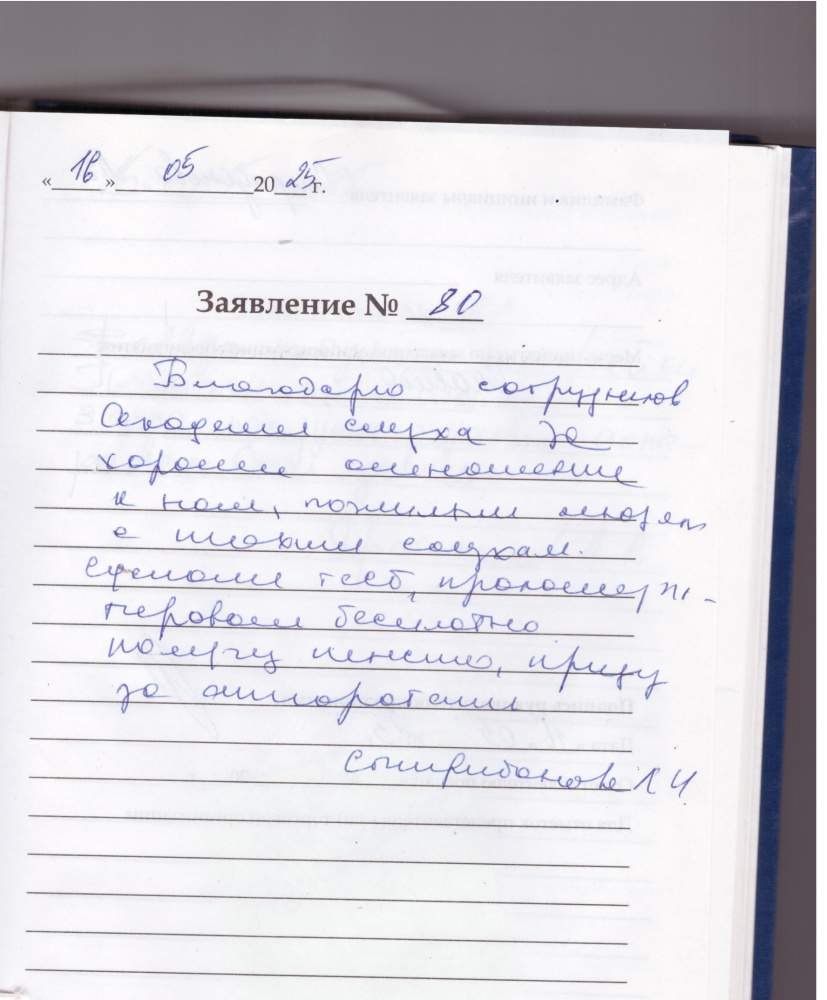 « 16 » 05 20 25 г.
Заявление № 80
Благодарю сотрудников
Академии слуха за
хорошее отношение
к нам, пожилым людям
с плохим слухом.
Сделали тест, проконсульти-
ровали бесплатно
получу пенсию, приду
за аппаратами
Л И